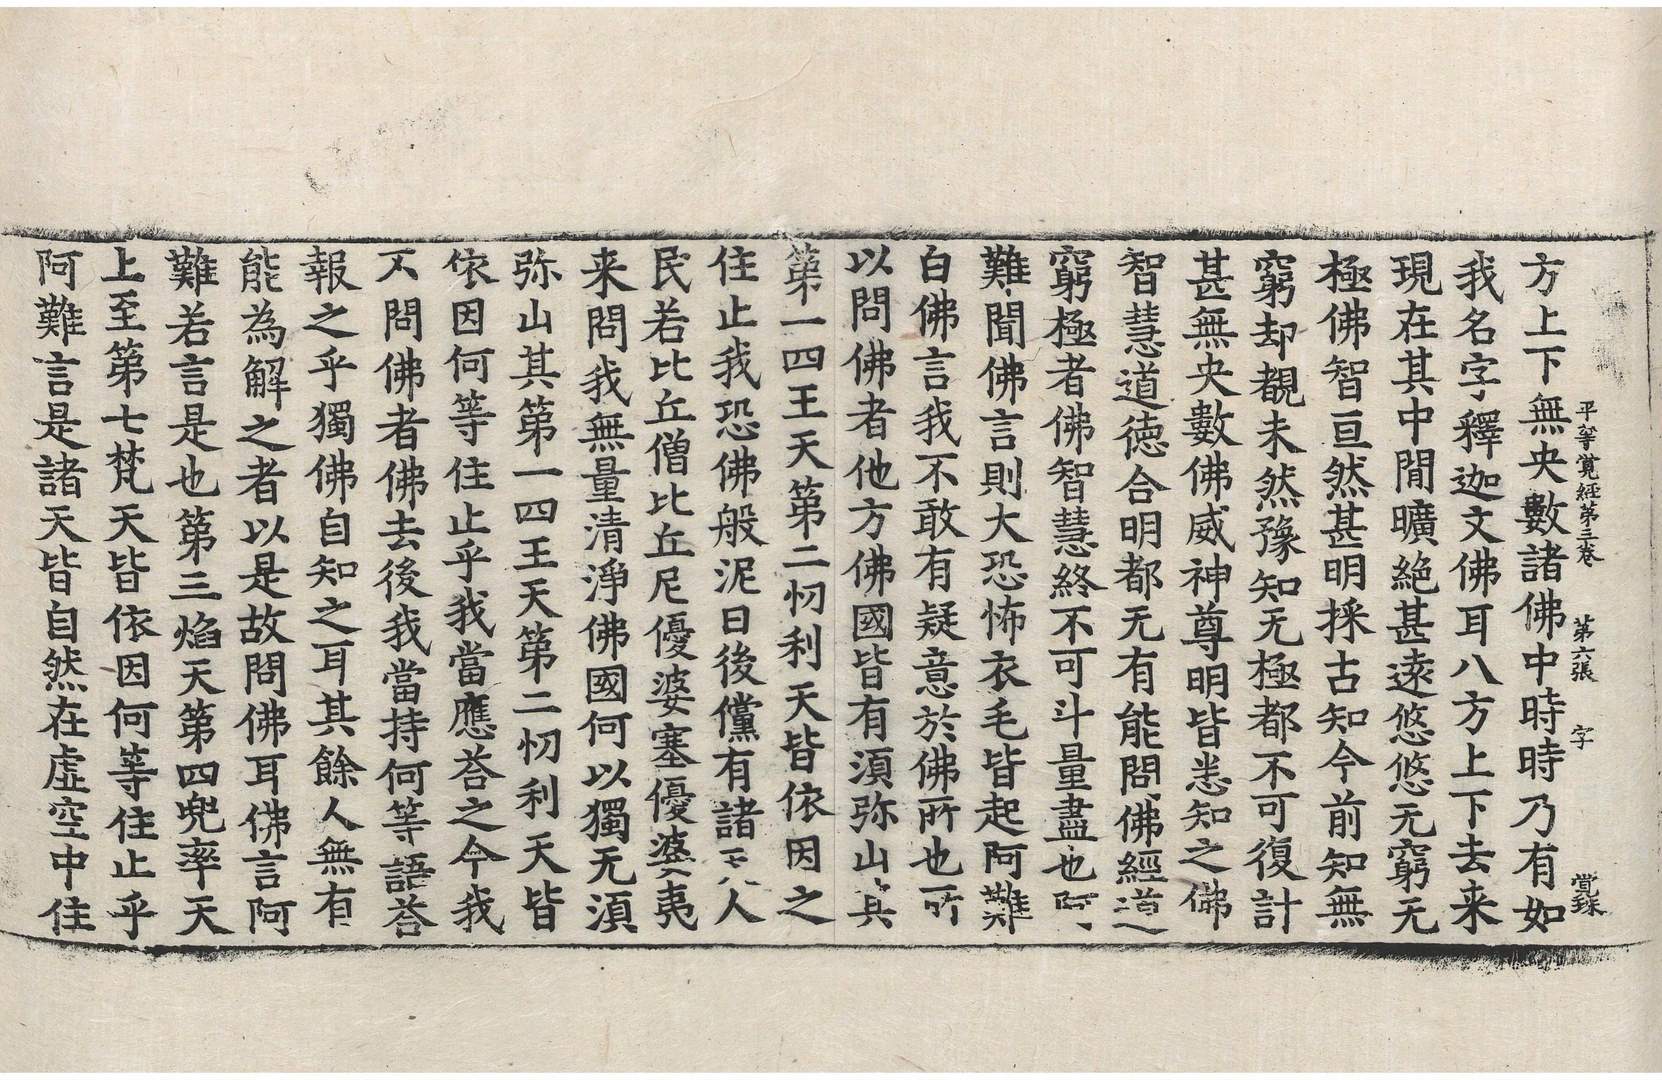 平等覺經第三卷 第六張 字
方上下無央數諸佛中時時乃有如
我名字釋迦文佛耳八方上下去来
現在其中閒曠絶甚遠悠悠无窮无
極佛智亘然甚明採古知今前知無
窮却覩未然豫知无極都不可復計
甚無央數佛威神尊明皆悉知之佛
智慧道德合明都无有能問佛經道
窮極者佛智慧終不可斗量盡也阿
難聞佛言則大恐怖衣毛皆起阿難
白佛言我不敢有疑意於佛所也所
以問佛者他方佛國皆有湏弥山其
第一四王天第二忉利天皆依因之
住止我恐佛般泥曰後儻有諸天人
民若比丘僧比丘尼優婆塞優婆夷
来問我無量清淨佛國何以獨无湏
弥山其第一四王天第二忉利天皆
依因何等住止乎我當應荅之今我
不問佛者佛去後我當持何等語荅
報之乎獨佛自知之耳其餘人無有
能為解之者以是故問佛耳佛言阿
難若言是也第三焰天第四兜率天
上至第七梵天皆依因何等住止乎
阿難言是諸天皆自然在虛空中住